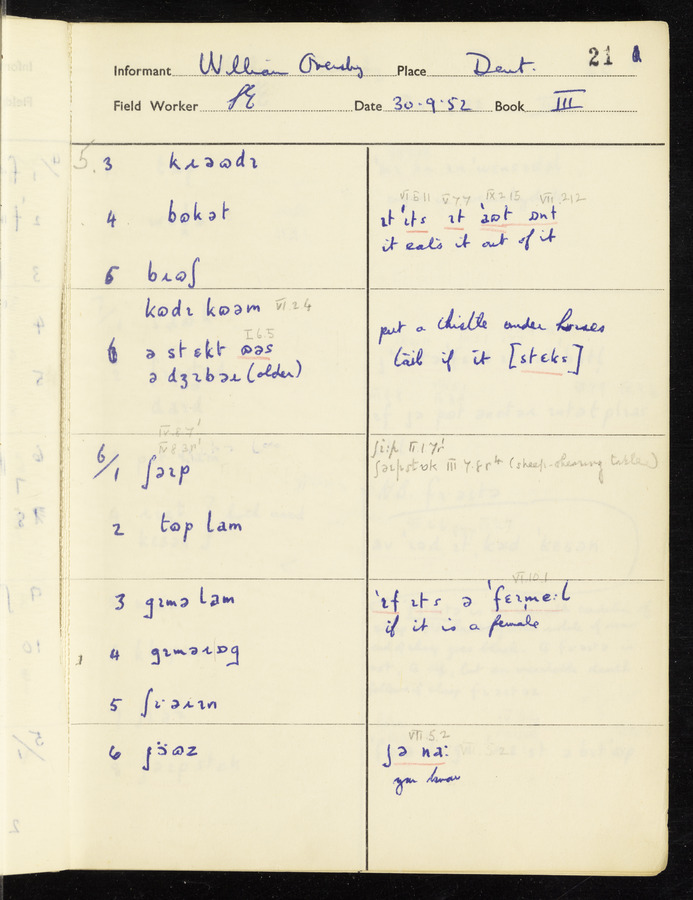 21
Informant William Oversby Place Dent.
Field Worker SE Date 30·9·52 Book III
5. 3 kɹəʊdɪ
4 bʊkət
VI.5.11 V.7.7 IX.2.15 VII.2.12
ɪt ɪts ɪt aʊt ɒnt
it eats it out of it
5 bɹʊʃ
kʊdɪ kʊəm VI.2.4
put a thistle under horses
I.6.5
6 ə stɛkt ʊəs
tail if it [stɛks]
ə dʒɪbəɹ (older)
IV.8.7
6/1 ʃəɪp
ʃɪ:p II.1.7
III.7.8 (sheep-shearing table)
2 tɵp lam
VI.10.1
3 gɪmə lam
ˈɪf ɪts ə ˈfɛɪme:l
if it is a female
4 gɪməɹɒg
5 ʃɪəɹɪn
VIII.5.2
6 ʃɔ̈əz
jə na:
you know